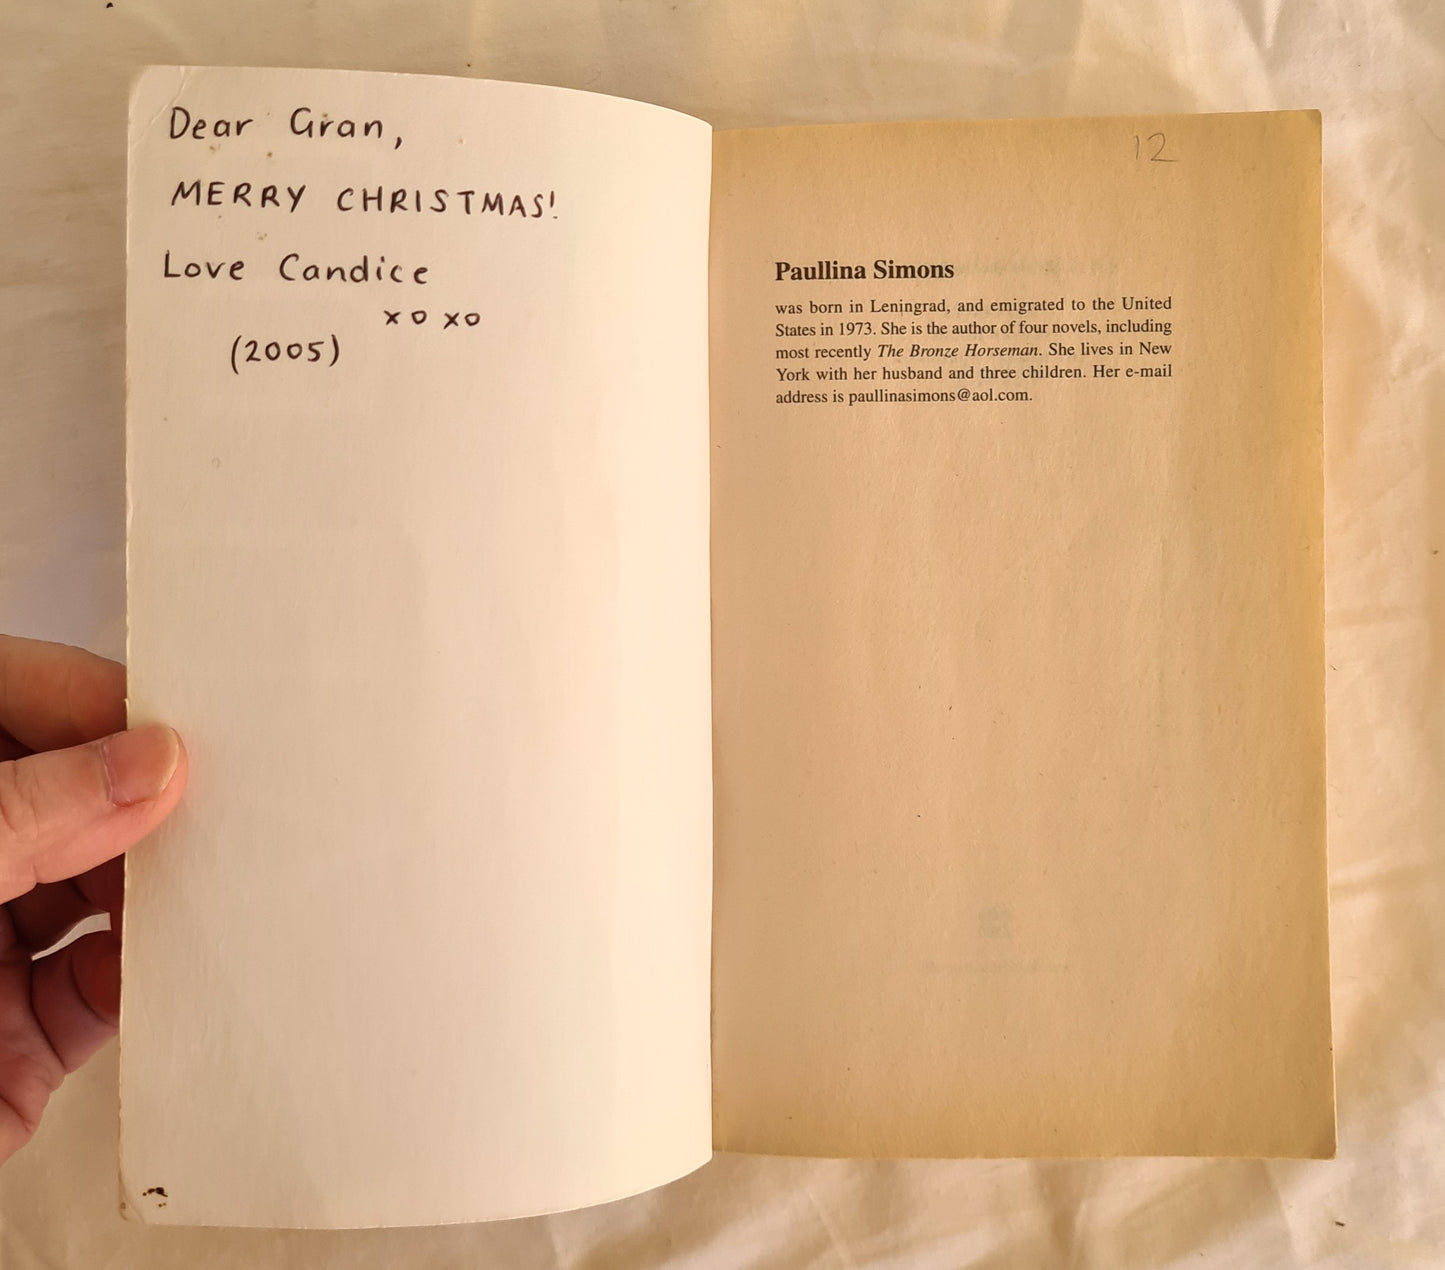 Dear Gran,
MERRY CHRISTMAS!
Love Candice
xo xo
(2005)
12
Paullina Simons
was born in Leningrad, and emigrated to the United
States in 1973. She is the author of four novels, including
most recently The Bronze Horseman. She lives in New
York with her husband and three children. Her e-mail
address is paullinasimons@aol.com.